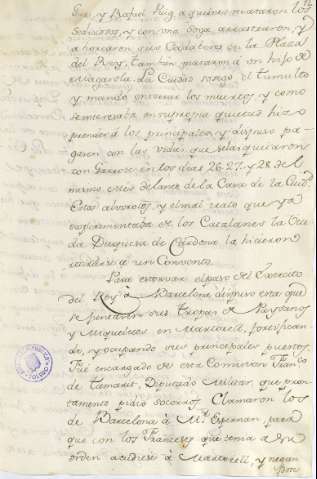 y Rafael Puig, a quienes mataron los
sediciosos, y con una soga arrastraron, y
ahorcaron sus Cadaberes en la Plaza
del Rey: tambien mataron a un hijo de
la Ciudad sosegó el tumulto
y mando enterrar los muertos, y como
en su propia quietud hizo
prender á los principales, y despues pa-
garon con las vidas que les quitaron
con Garrote en los dias 26. 27. y 28. del
mismo mes delante de la Casa de la Ciud.
Estos alborotos, y el mal trato que ya
experimentaba de los Catalanes la Viu-
da Duquesa de Cardona la hicieron
á un Convento.
Para estorvar el paso del Exercito
del Rey á Barcelona dispuso esta que
se juntasen sus tropas de Paysanos
y Miqueletes en Martorell, fortifican-
do, y ocupando sus principales puestos.
Fué encargado de esta Comision Fran.co
de Tamarit, Diputado Militar, que pron-
tamente pidio socorros. Clamaron los
de Barcelona á M.r Espernan para
que con los Franceses que tenia a su
orden acudiese á Martorell, y negan-